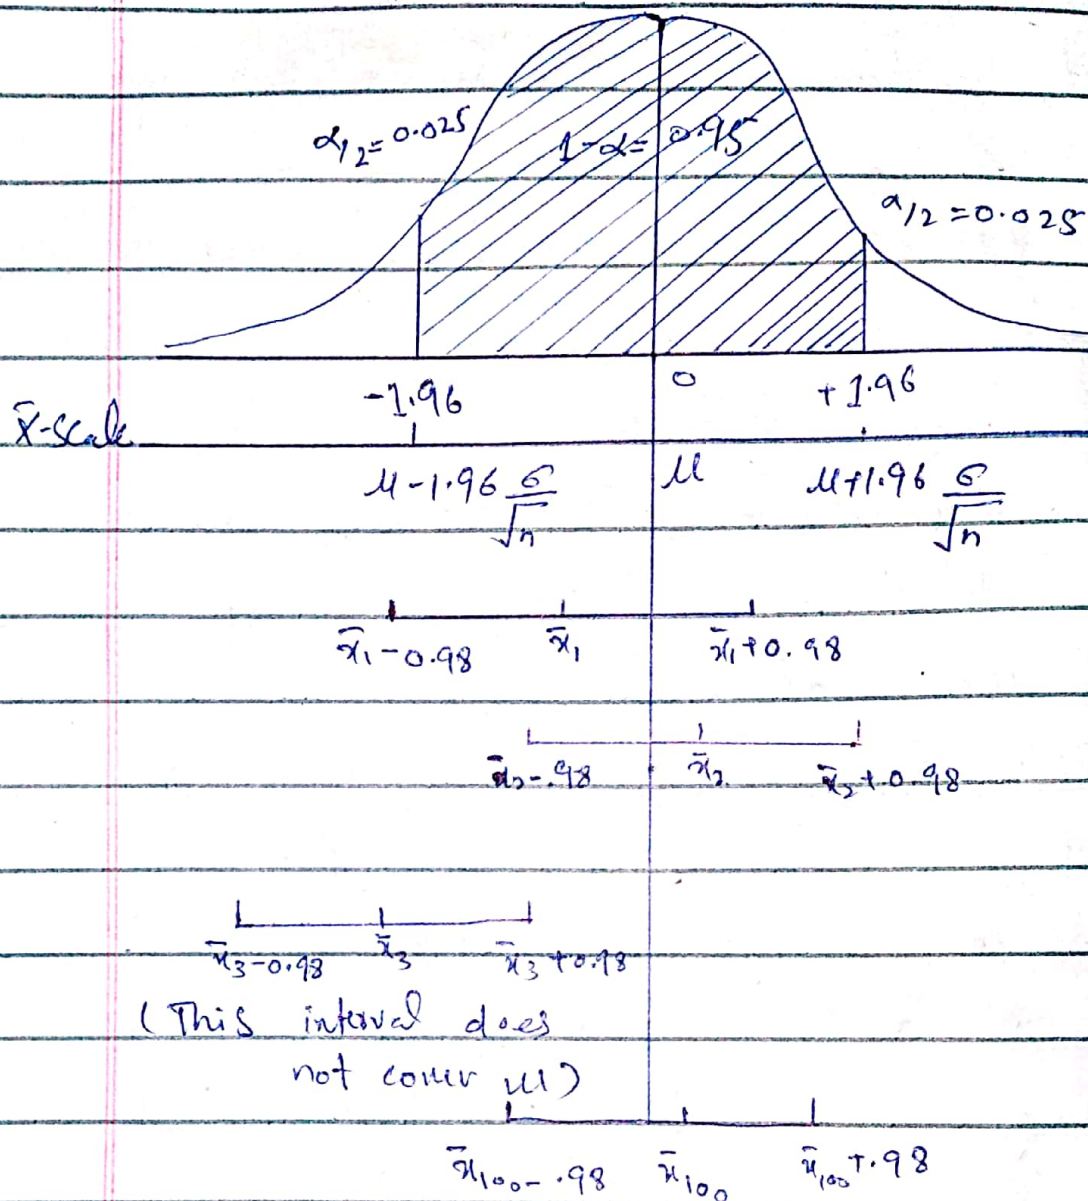 α/2 = 0.025
1-α = 0.95
α/2 = 0.025
-1.96 0 +1.96
x̄-scale
μ-1.96 σ/√n μ μ+1.96 σ/√n
x̄₁-0.98 x̄₁ x̄₁+0.98
x̄₂-.98 x̄₂ x̄₂+0.98
x̄₃-0.98 x̄₃ x̄₃+0.98
(This interval does
not cover μ)
x̄₁₀₀-.98 x̄₁₀₀ x̄₁₀₀+.98